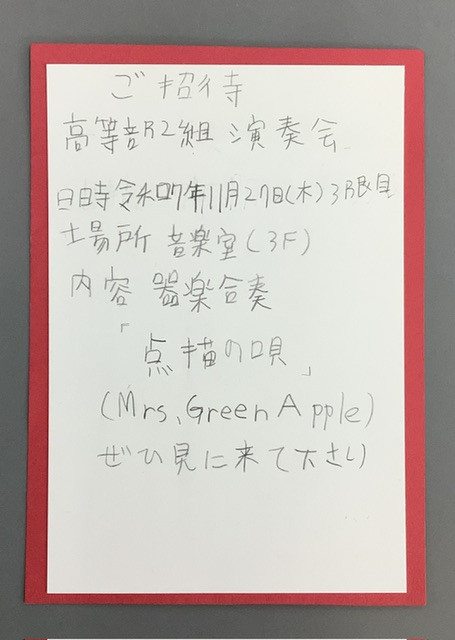 ご招待
高等部2組 演奏会
日時 令和7年11月27日(木)3限目
場所 音楽室(3F)
内容 器楽合奏
「点描の唄」
(Mrs.Green Apple)
ぜひ見に来て下さい